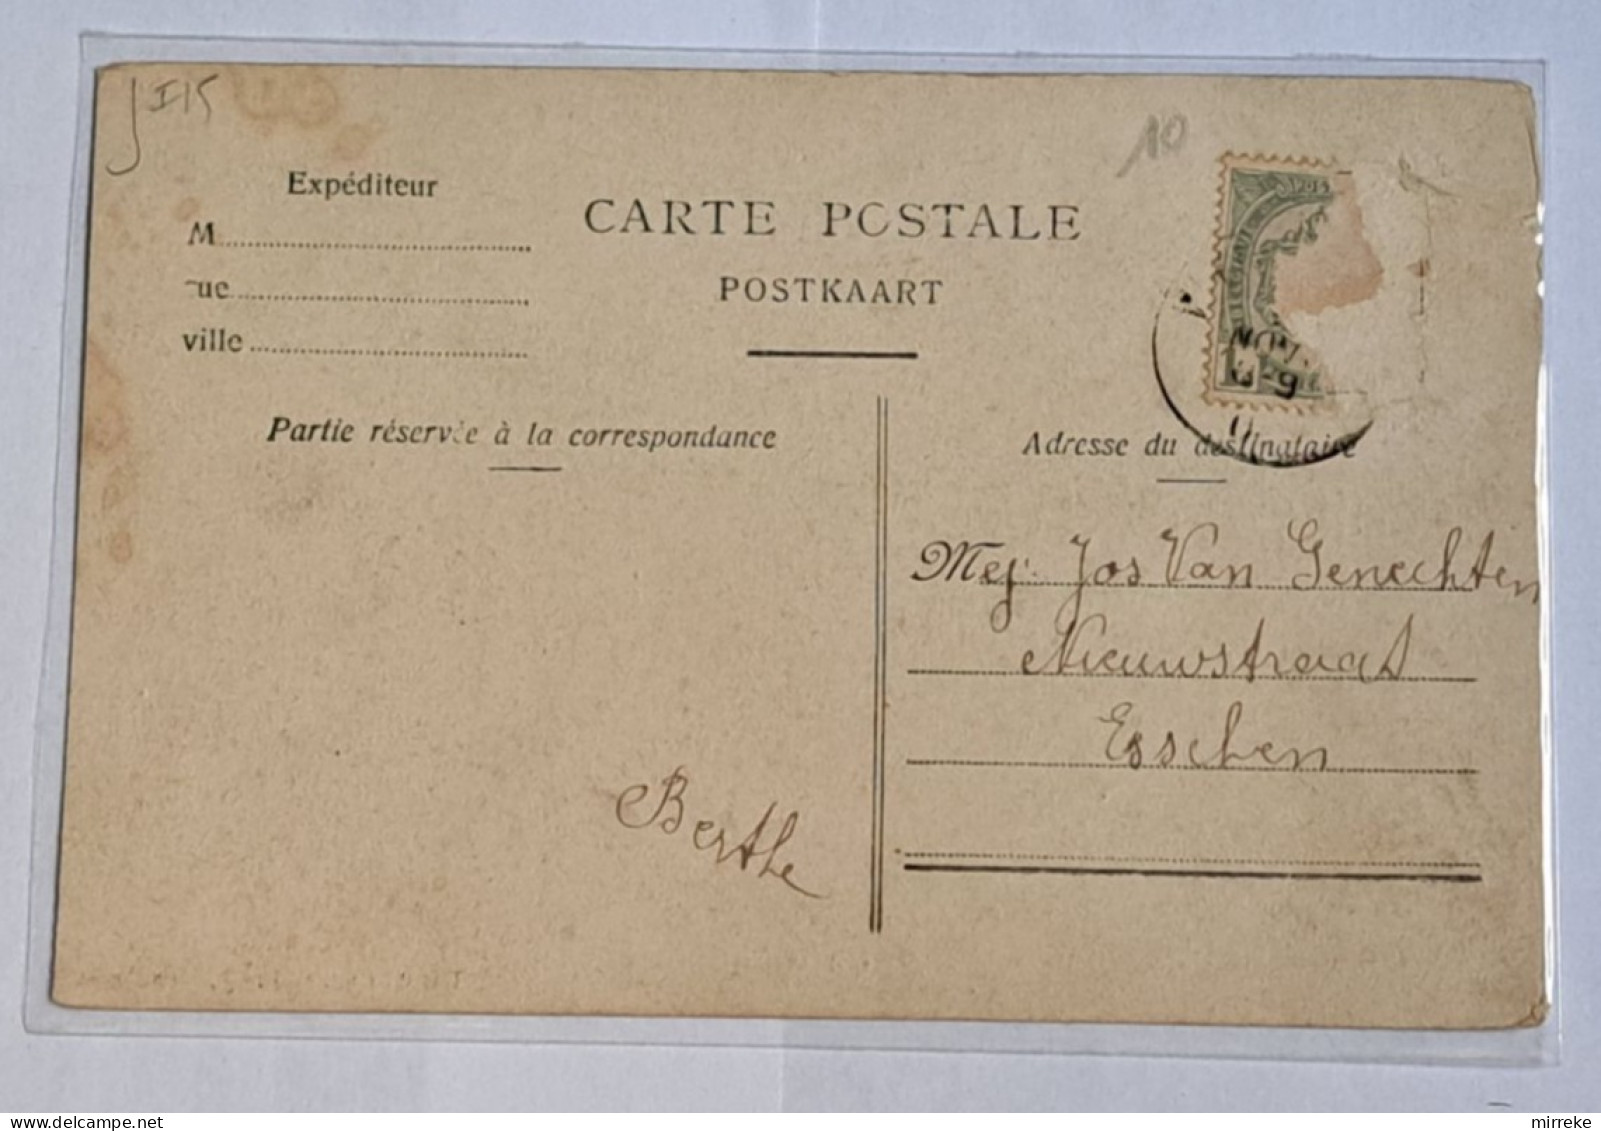 J I15
10
Expéditeur
M
rue
ville
CARTE POSTALE
POSTKAART
NOV.
Partie réservée à la correspondance
Adresse du destinataire
Mej. Jos Van Genechten
Nieuwstraat
Esschen
Berthe
mirreke